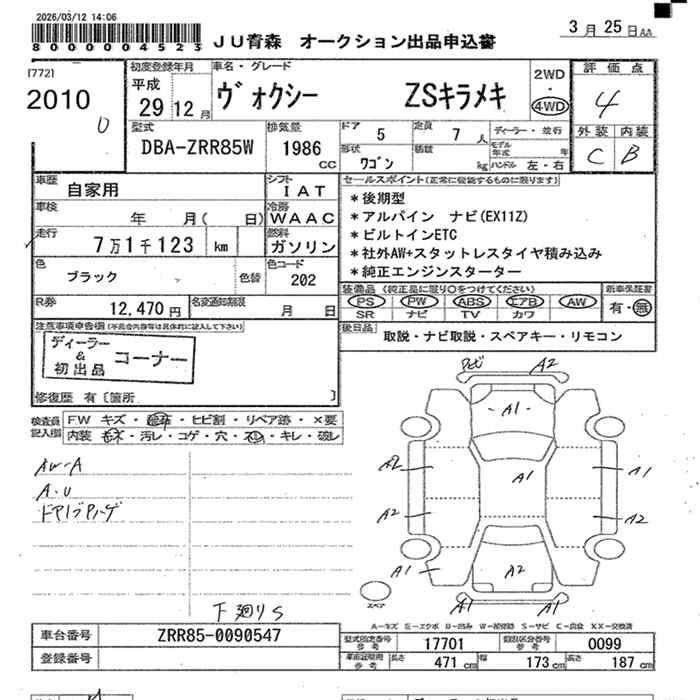 2026/03/12 14:06
800000004523
JU青森 オークション出品申込書
3月25日AA
[772]
2010
0
初度登録年月
平成
29 12月
車名・グレード
ヴォクシー ZSキラメキ
2WD
・
4WD
評価点
4
外装 内装
C B
型式
DBA-ZRR85W
排気量
1986
CC
ドア 5
定員 7人
形状
ワゴン
積載
kg
ディーラー・並行
モデル年式 年
ハンドル 左・右
車歴
自家用
シフト
IAT
車検
年 月( 日)
冷房
WAAC
走行
7万1千123 km
燃料
ガソリン
色
ブラック
色替
色コード
202
R券
12,470円
名変通知期限
月 日
セールスポイント(正常に機能するものに限ります)
*後期型
*アルパイン ナビ(EX11Z)
*ビルトインETC
*社外AW+スタットレスタイヤ積み込み
*純正エンジンスターター
装備品(純正品に限り○をつけてください)
PS PW ABS エアB AW
SR ナビ TV カワ
新車保証書
有・無
後日品
取説・ナビ取説・スペアキー・リモコン
注意事項申告欄
ディーラー
&
初出品
コーナー
修復歴 有〔箇所 〕
検査員
記入欄
F.W キズ・飛石・ヒビ割・リペア跡・×要
内装 キズ・汚レ・コゲ・穴・スレ・キレ・破レ
AW-A
A.U
下廻りS
A2
A1
A1
A2
A1
A2
A2
A1
A2
A1
A1
スペア
A-キズ E-エクボ U-凹み W-補修跡 S-サビ C-腐食 XX-交換済
車台番号
ZRR85-0090547
登録番号
型式指定番号
参考
17701
類別区分番号
参考
0099
長さ 471 cm
幅 173 cm
高さ 187 cm